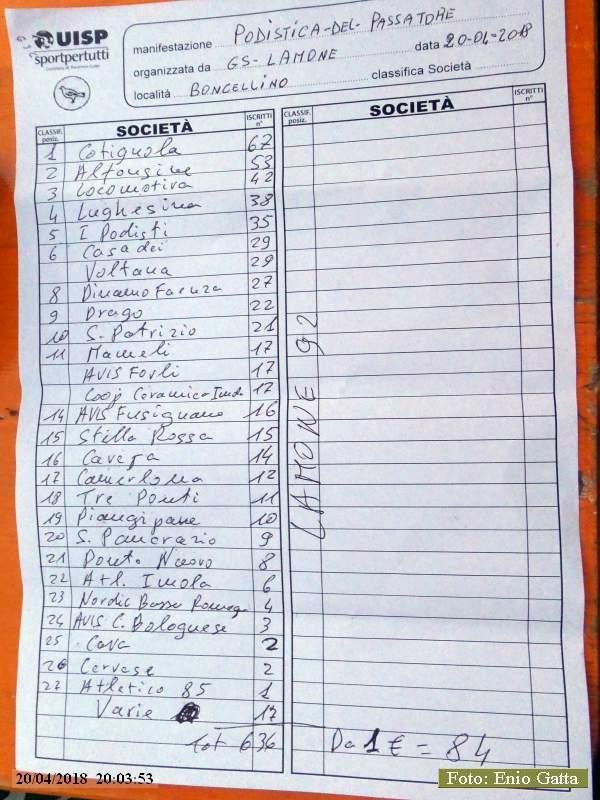 UISP
sportpertutti
manifestazione PODISTICA-DEL-PASSATORE
organizzata da GS-LAMONE data 20-04-2018
località BONCELLINO classifica Società
CLASSIF. posiz. SOCIETÀ ISCRITTI n°
CLASSIF. posiz. SOCIETÀ ISCRITTI n°
1 Cotignola 67
2 Alfonsine 53
3 Locomotiva 42
4 Lughesina 38
5 I Podisti 35
6 Casadei 29
Voltana 29
8 Dinamo Faenza 27
9 Drago 22
10 S. Patrizio 21
11 Mameli 17
AVIS Forlì 17
Coop Ceramica Imola 17
14 AVIS Fusignano 16
15 Stella Rossa 15
16 Caveja 14
17 Camerlona 12
18 Tre Ponti 11
19 Piangipane 10
20 S. Pancrazio 9
21 Ponte Nuovo 8
22 Atl. Imola 6
23 Nordic Bassa Romag 4
24 AVIS C. Bolognese 3
25 Cava 2
26 Cervese 2
27 Atletico 85 1
Varie 17
Tot 636
LAMONE 92
Da 1 € = 84
20/04/2018 20:03:53
Foto: Enio Gatta